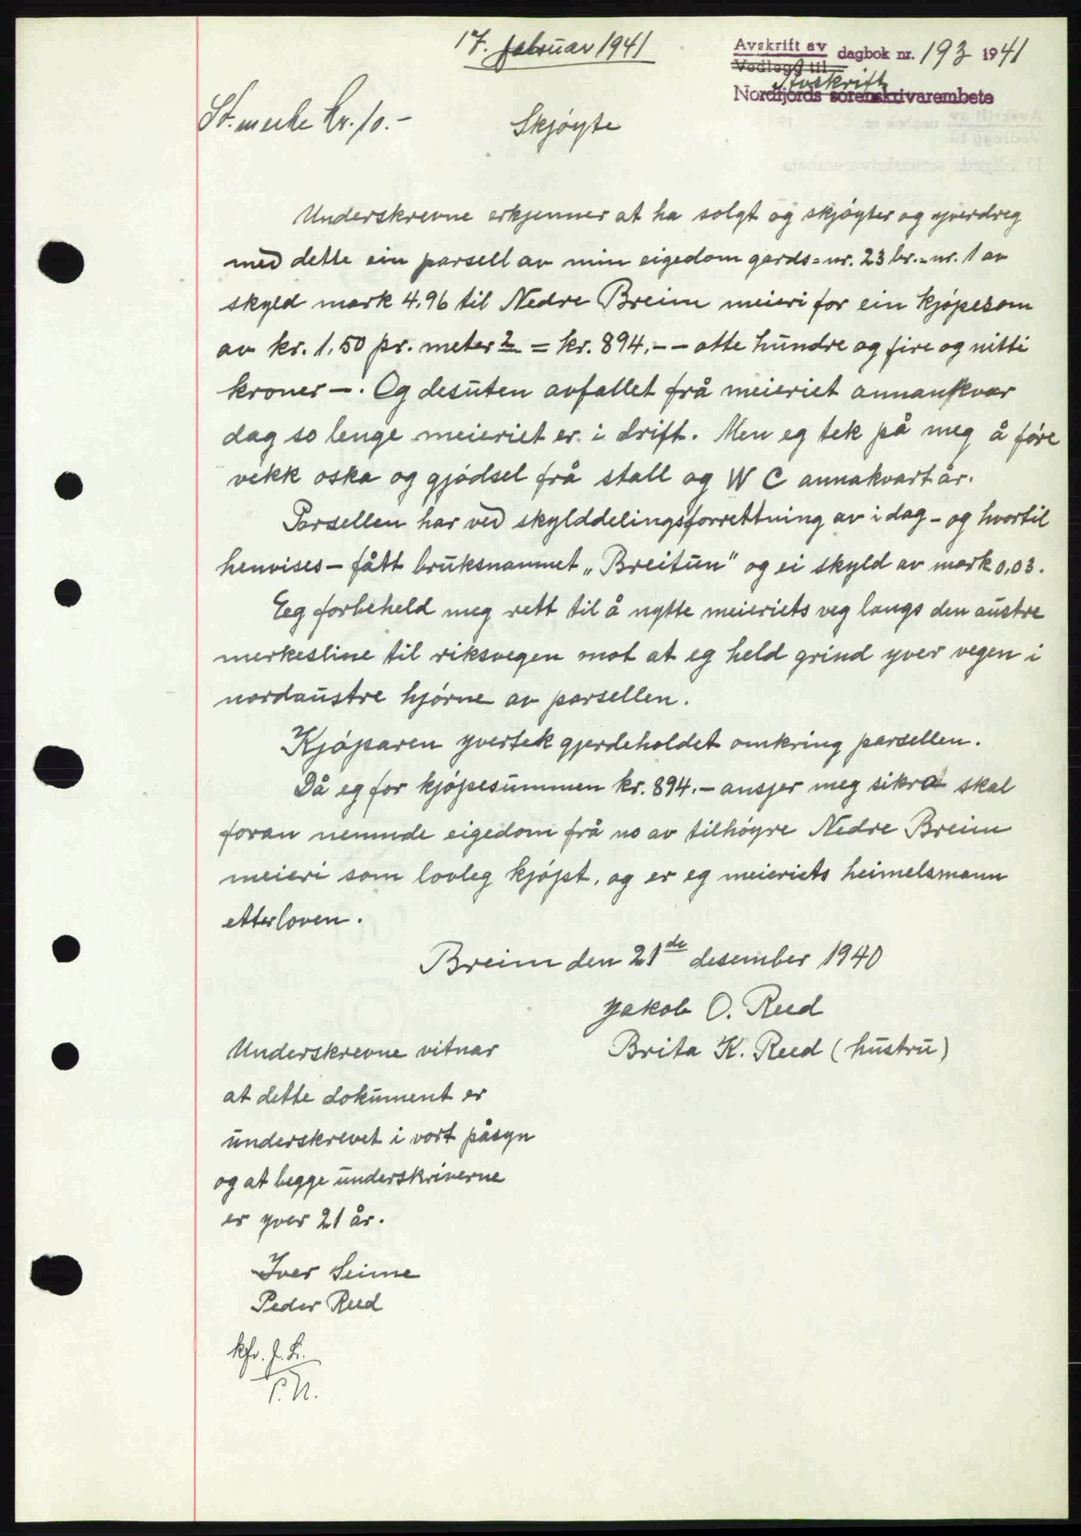 17. februar 1941
Avskrift av dagbok nr. 193 1941
Vedlegg til
Avskrift
Nordfjords sorenskrivarembete
St. merke kr. 10.-
Skjøyte
Underskrevne erkjenner at ha solgt og skjøyter og yverdreg
med dette ein parsell av min eigedom gards=nr. 23 br.=nr. 1 av
skyld mark 4,96 til Nedre Breim meieri for ein kjøpesom
av kr. 1,50 pr. meter 2 = kr. 894.- - otte hundre og fire og nitti
kroner -. Og desuten avfallet frå meieriet annankvar
dag so lenge meieriet er i drift. Men eg tek på meg å føre
vekk oska og gjødsel frå stall og W C annakvart år.
Parsellen har ved skylddelingsforrettning av i dag - og hvortil
henvises - fått bruksnamnet "Breitun" og ei skyld av mark 0,03.
Eeg forbeheld meg rett til å nytte meieriets veg langs den austre
merkesline til riksvegen mot at eg held grind yver vegen i
nordaustre hjørne av parsellen.
Kjøparen yvertek gjerdeholdet omkring parsellen.
Då eg for kjøpesummen kr. 894.- ansjer meg sikra skal
foran nemnde eigedom frå no av tilhøyre Nedre Breim
meieri som lovleg kjøpt, og er eg meieriets heimelsmann
etter loven.
Breim den 21de desember 1940
Jakob O. Reed
Brita K. Reed (hustru)
Underskrevne vitnar
at dette dokument er
underskrevet i vort påsyn
og at begge underskriverne
er yver 21 år.
Iver Seime
Peder Reed
kfr. J. L.
P. N.